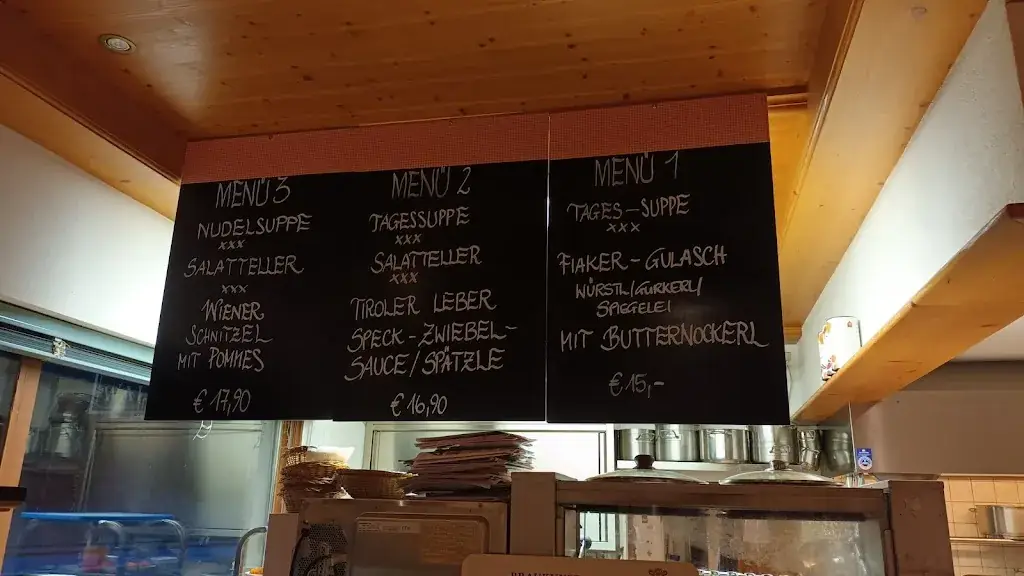 MENÜ 3
NUDELSUPPE
xxx
SALATTELLER
xxx
WIENER
SCHNITZEL
MIT POMMES
€ 17,90
MENÜ 2
TAGESSUPPE
xxx
SALATTELLER
xxx
TIROLER LEBER
SPECK-ZWIEBEL-
SAUCE/SPÄTZLE
€ 16,90
MENÜ 1
TAGES-SUPPE
xxx
FIAKER-GULASCH
WÜRSTL/GURKERL/
SPIEGELEI
MIT BUTTERNOCKERL
€ 15,-